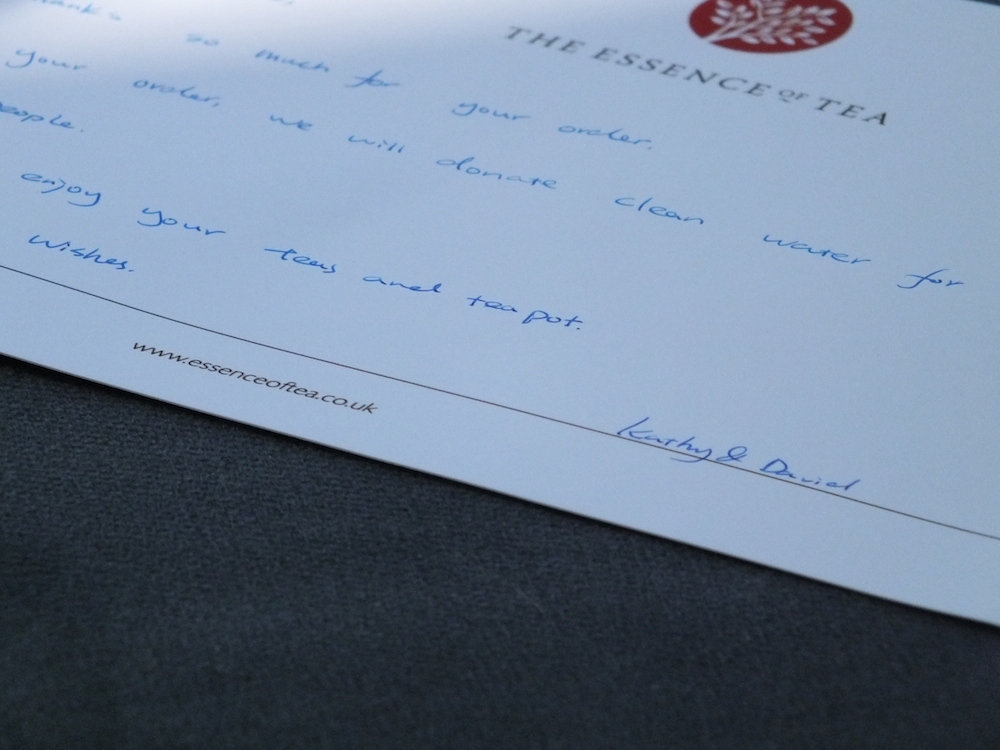 THE ESSENCE OF TEA
so much for your order.
your order, we will donate clean water for
people.
enjoy your teas and teapot.
wishes.
Kathy & David
www.essenceoftea.co.uk